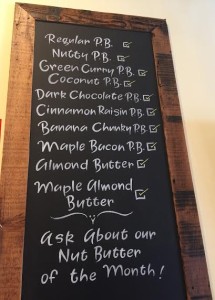 Regular P.B. ☑
Nutty P.B. ☑
Green Curry P.B. ☑
Coconut P.B. ☑
Dark Chocolate P.B. ☑
Cinnamon Raisin P.B. ☑
Banana Chunky P.B. ☑
Maple Bacon P.B. ☑
Almond Butter ☑
Maple Almond ☑
Butter
Ask About our
Nut Butter
of the Month!